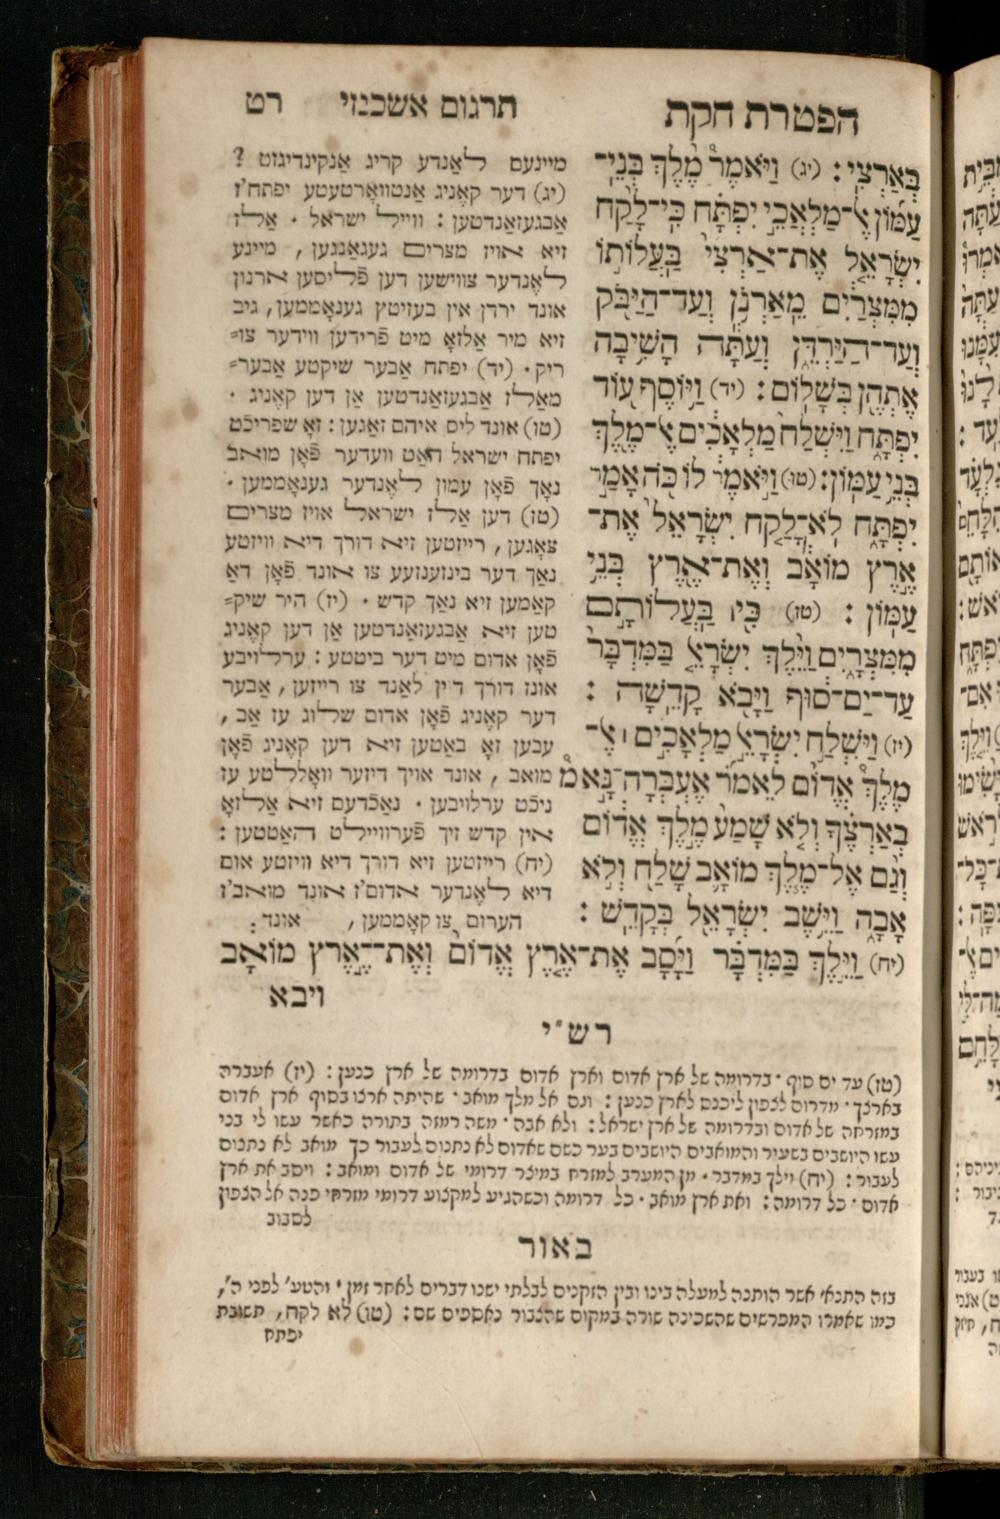 הפטרת חקת
תרגום אשכנזי
רט
בְּאַרְצִי: (יג) וַיֹּאמֶר מֶלֶךְ בְּנֵי־
עַמּוֹן אֶל־מַלְאֲכֵי יִפְתָּח כִּי־לָקַח
יִשְׂרָאֵל אֶת־אַרְצִי בַּעֲלוֹתוֹ
מִמִּצְרַיִם מֵאַרְנֹן וְעַד־הַיַּבֹּק
וְעַד־הַיַּרְדֵּן וְעַתָּה הָשִׁיבָה
אֶתְהֶן בְּשָׁלוֹם: (יד) וַיּוֹסֶף עוֹד
יִפְתָּח וַיִּשְׁלַח מַלְאָכִים אֶל־מֶלֶךְ
בְּנֵי עַמּוֹן: (טו) וַיֹּאמֶר לוֹ כֹּה אָמַר
יִפְתָּח לֹא־לָקַח יִשְׂרָאֵל אֶת־
אֶרֶץ מוֹאָב וְאֶת־אֶרֶץ בְּנֵי
עַמּוֹן: (טז) כִּי בַּעֲלוֹתָם
מִמִּצְרָיִם וַיֵּלֶךְ יִשְׂרָאֵל בַּמִּדְבָּר
עַד־יַם־סוּף וַיָּבֹא קָדֵשָׁה:
(יז) וַיִּשְׁלַח יִשְׂרָאֵל מַלְאָכִים ׀ אֶל־
מֶלֶךְ אֱדוֹם לֵאמֹר אֶעְבְּרָה־נָּא
בְאַרְצֶךָ וְלֹא שָׁמַע מֶלֶךְ אֱדוֹם
וְגַם אֶל־מֶלֶךְ מוֹאָב שָׁלַח וְלֹא
אָבָה וַיֵּשֶׁב יִשְׂרָאֵל בְּקָדֵשׁ:
(יח) וַיֵּלֶךְ בַּמִּדְבָּר וַיָּסָב אֶת־אֶרֶץ אֱדוֹם וְאֶת־אֶרֶץ מוֹאָב
ויבא
מיינעם לאַנדע קריג אַנקינדיגזט ?
(יג) דער קאֶניג אַנטוואָרטעטע יפתח'ז
אַבגעזאַנדטען: ווייל ישראל. אַלז
זיא אויז מצרים געגאַנגען, מיינע
לאֶנדער צווישען דען פֿליסען ארנון
אונד ירדן אין בעזיטץ גענאָממען, גיב
זיא מיר אַלזאָ מיט פֿרידען ווידער צו⸗
ריק. (יד) יפתח אַבער שיקטע אַבער⸗
מאַלז אַבגעזאַנדטען אַן דען קאֶניג.
(טו) אונד ליס איהם זאַגען: זאָ שפריכט
יפתח ישראל האַט וועדער פֿאָן מואב
נאָך פֿאָן עמון לאֶנדער גענאָממען.
(טז) דען אַלז ישראל אויז מצרים
צאָגען, רייזטען זיא דורך דיא וויזטע
נאַך דער בינזענזעע צו אונד פֿאָן דאַ
קאַמען זיא נאַך קדש. (יז) היר שיק⸗
טען זיא אַבגעזאַנדטען אַן דען קאֶניג
פֿאָן אדום מיט דער ביטטע: ערלויבע
אונז דורך דיין לאַנד צו רייזען, אַבער
דער קאֶניג פֿאָן אדום שלוג עז אַב,
עבען זאָ באַטען זיא דען קאֶניג פֿאָן
מואב, אונד אויך דיזער וואָללטע עז
ניכט ערלויבען. נאַכֿדעם זיא אַלזאָ
אין קדש זיך פֿערווײלט האַטטען:
(יח) רייזטען זיא דורך דיא וויזטע אום
דיא לאֶנדער אדום'ז אונד מואב'ז
הערום צו קאָממען, אונד:
רש״י
(טז) עד ים סוף. בדרומה של ארץ אדום וארץ אדום בדרומה של ארץ כנען: (יז) אעברה
בארצך. מדרום לצפון ליכנס לארץ כנען: וגם אל מלך מואב. שהיתה ארצו בסוף ארץ אדום
במזרחה של אדום ובדרומה של ארץ ישראל: ולא אבה. משה רמזה בתורה כאשר עשו לי בני
עשו היושבים בשעיר והמואבים היושבים בער כשם שאדום לא נתנום לעבור כך מואב לא נתנום
לעבור: (יח) וילך במדבר. מן המערב למזרח במיצר דרומי של אדום ומואב: ויסב את ארץ
אדום. כל דרומה: ואת ארץ מואב. כל דרומה וכשהגיע למקצוע דרומי מזרחי פנה אל הצפון
לסבוב
באור
בזה התנאי אשר הותנה למעלה בינו ובין הזקנים לבלתי ישנו דברים לאחר זמן. והטע׳ לפני ה׳,
כמו שאמרו המפרשים שהשכינה שורה במקום שהצבור נאספים שם: (טו) לא לקח, תשובת
יפתח